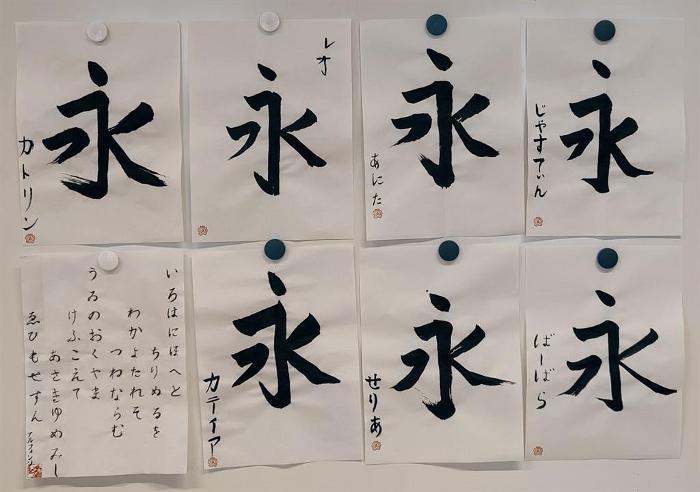 永
カトリン
レオ
永
永
あにた
永
じゃすてぃん
いろはにほへと
ちりぬるを
わかよたれそ
つねならむ
うゐのおくやま
けふこえて
あさきゆめみし
ゑひもせすん
永
カティア
永
せりあ
永
ばーばら